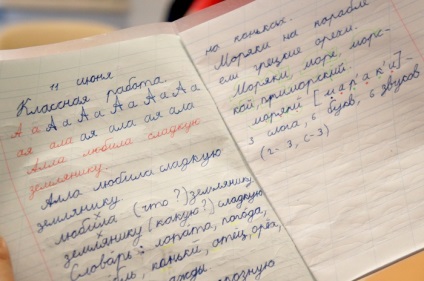 11 июня
Классная работа.
А а А а А а А а А а А а
ая ала ая ала ая ала
Алла любила сладкую
землянику.
Алла любила сладкую
землянику.
любила (что?) землянику
землянику (какую?) сладкую
Словарь: лопата, погода,
коньки, отец, орёл,
на коньках.
Моряки на корабле
ели грецкие орехи.
Моряки, море, морс-
кой, приморский.
моряки [м а р' а к' и] -
3 слога, 6 букв, 6 звуков
(г-3, с-3)